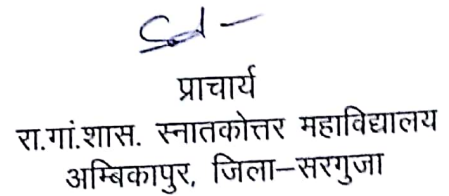 Sd-
प्राचार्य
रा.गां.शास. स्नातकोत्तर महाविद्यालय
अम्बिकापुर, जिला–सरगुजा